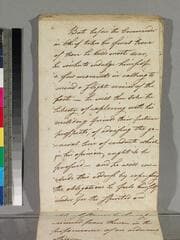 But before the Commander
in Chief takes his final leave
of those he holds most dear,
he wishes to indulge himself
a few moments in calling to
mind a slight review of the
past — he will then take the
liberty of exploring with his
military friends their future
prospects, of advising the gene-
ral line of conduct which
in his opinion ought to be
pursued — and he will con-
clude the address by expressing
the obligations he feels himself
under for the spirited and
performance of an arduous